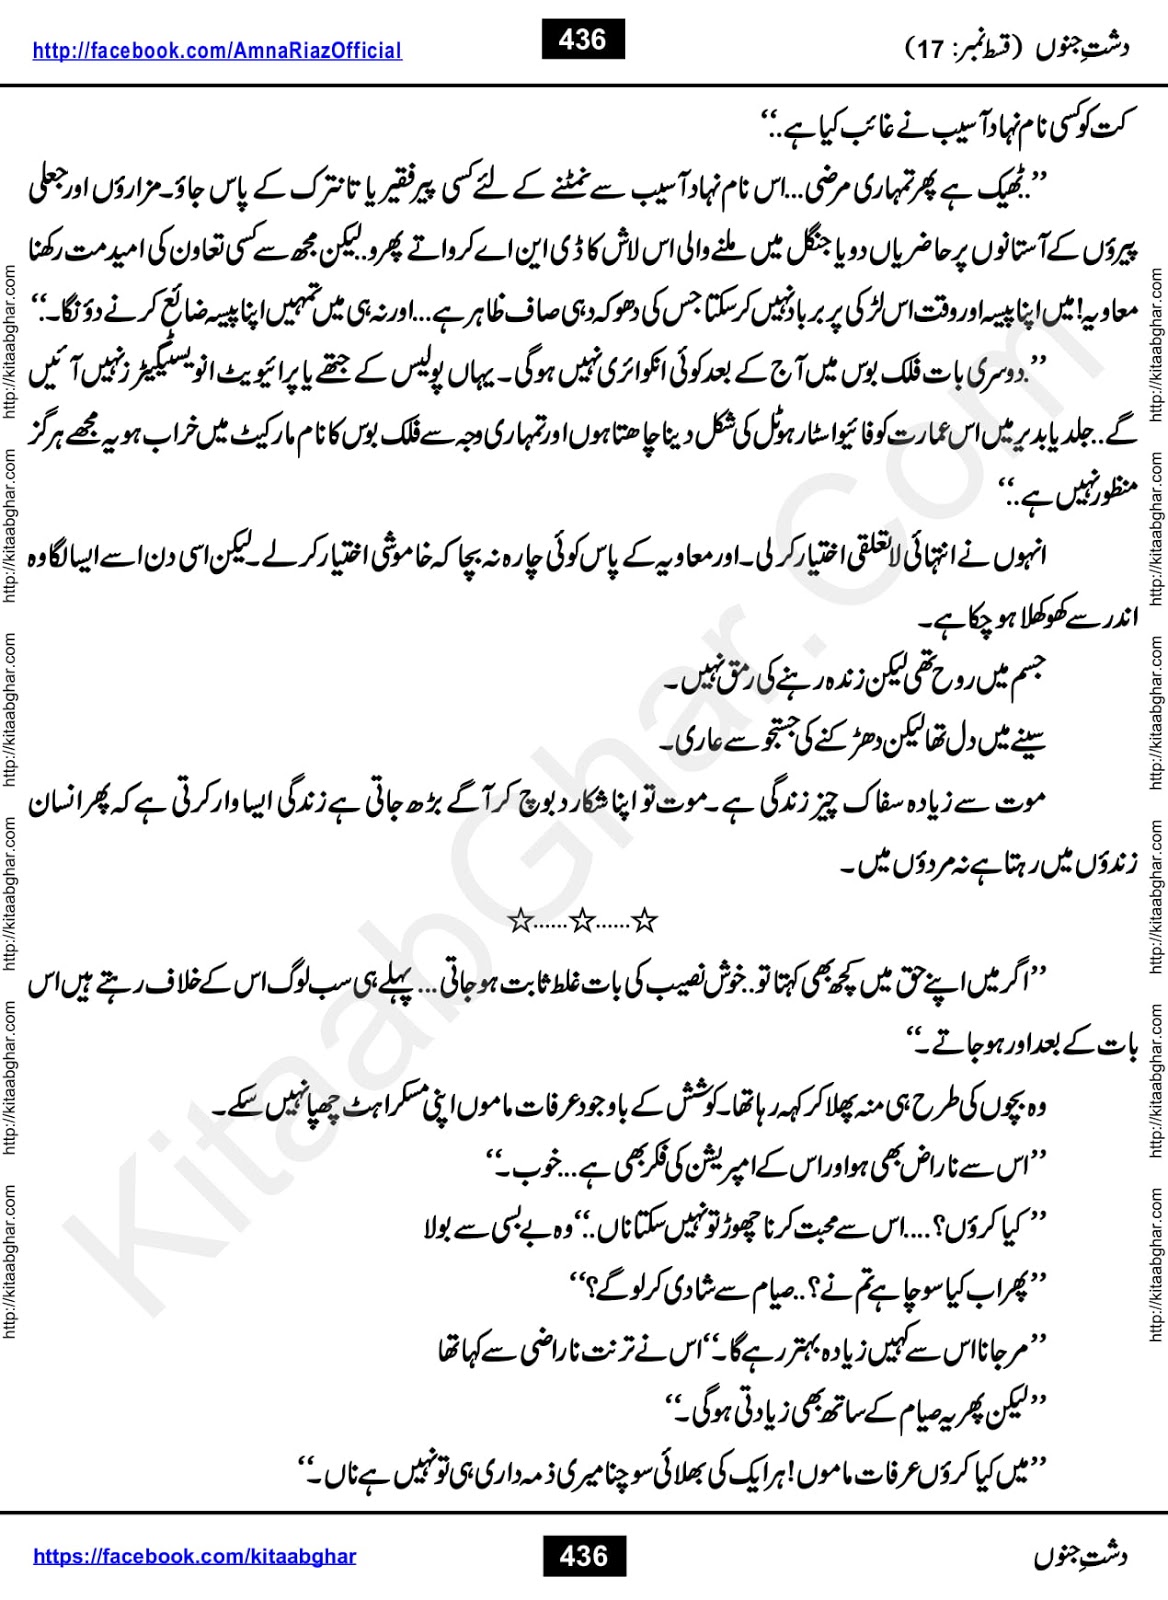 http://facebook.com/AmnaRiazOfficial
436
دشتِ جنوں (قسط نمبر: 17)
کت کو کسی نام نہاد آسیب نے غائب کیا ہے..‘‘
’’..ٹھیک ہے پھر تمہاری مرضی...اس نام نہاد آسیب سے نمٹنے کے لئے کسی پیر فقیر یا تانترک کے پاس جاؤ۔مزارؤں اور جعلی
پیرؤں کے آستانوں پر حاضریاں دو یا جنگل میں ملنے والی اس لاش کا ڈی این اے کرواتے پھرو..لیکن مجھ سے کسی تعاون کی امید مت رکھنا
معاویہ! میں اپنا پیسہ اور وقت اس لڑکی پر برباد نہیں کر سکتا جس کی دھوکہ دہی صاف ظاہر ہے...اور نہ ہی میں تمہیں اپنا پیسہ ضائع کرنے دؤنگا۔‘‘
’’.دوسری بات فلک بوس میں آج کے بعد کوئی انکوائری نہیں ہوگی۔ یہاں پولیس کے جتھے یا پرائیویٹ انویسٹیگیٹرز نہیں آئیں
گے..جلد یا بدیر میں اس عمارت کو فائیو اسٹار ہوٹل کی شکل دینا چاھتا ہوں اور تمہاری وجہ سے فلک بوس کا نام مارکیٹ میں خراب ہو یہ مجھے ہرگز
منظور نہیں ہے..‘‘
انہوں نے انتہائی لا تعلقی اختیار کر لی۔اور معاویہ کے پاس کوئی چارہ نہ بچا کہ خاموشی اختیار کر لے۔لیکن اسی دن اسے ایسا لگا وہ
اندر سے کھوکھلا ہو چکا ہے۔
جسم میں روح تھی لیکن زندہ رہنے کی رمق نہیں۔
سینے میں دل تھا لیکن دھڑکنے کی جستجو سے عاری۔
موت سے زیادہ سفاک چیز زندگی ہے۔موت تو اپنا شکار دبوچ کر آگے بڑھ جاتی ہے زندگی ایسا وار کرتی ہے کہ پھر انسان
زندؤں میں رہتا ہے نہ مردؤں میں۔
☆......☆......☆
’’اگر میں اپنے حق میں کچھ بھی کہتا تو..خوش نصیب کی بات غلط ثابت ہو جاتی... پہلے ہی سب لوگ اس کے خلاف رہتے ہیں اس
بات کے بعد اور ہو جاتے۔‘‘
وہ بچوں کی طرح ہی منہ پھلا کر کہہ رہا تھا۔کوشش کے باوجود عرفات ماموں اپنی مسکراہٹ چھپا نہیں سکے۔
’’اس سے ناراض بھی ہو اور اس کے امپریشن کی فکر بھی ہے...خوب۔‘‘
’’کیا کرؤں؟....اس سے محبت کرنا چھوڑ تو نہیں سکتا ناں..‘‘وہ بے بسی سے بولا
’’پھر اب کیا سوچا ہے تم نے؟..صیام سے شادی کر لو گے؟‘‘
’’مر جانا اس سے کہیں زیادہ بہتر رہے گا۔‘‘اس نے ترنت ناراضی سے کہا تھا
’’لیکن پھر یہ صیام کے ساتھ بھی زیادتی ہوگی۔‘‘
’’میں کیا کرؤں عرفات ماموں! ہر ایک کی بھلائی سوچنا میری ذمہ داری ہی تو نہیں ہے ناں۔‘‘
https://facebook.com/kitaabghar
436
دشتِ جنوں
http://kitaabghar.com
http://kitaabghar.com
http://kitaabghar.com
http://kitaabghar.com
http://kitaabghar.com
http://kitaabghar.com
http://kitaabghar.com
http://kitaabghar.com
http://kitaabghar.com
http://kitaabghar.com
http://kitaabghar.com
http://kitaabghar.com
KitaabGhar.Com